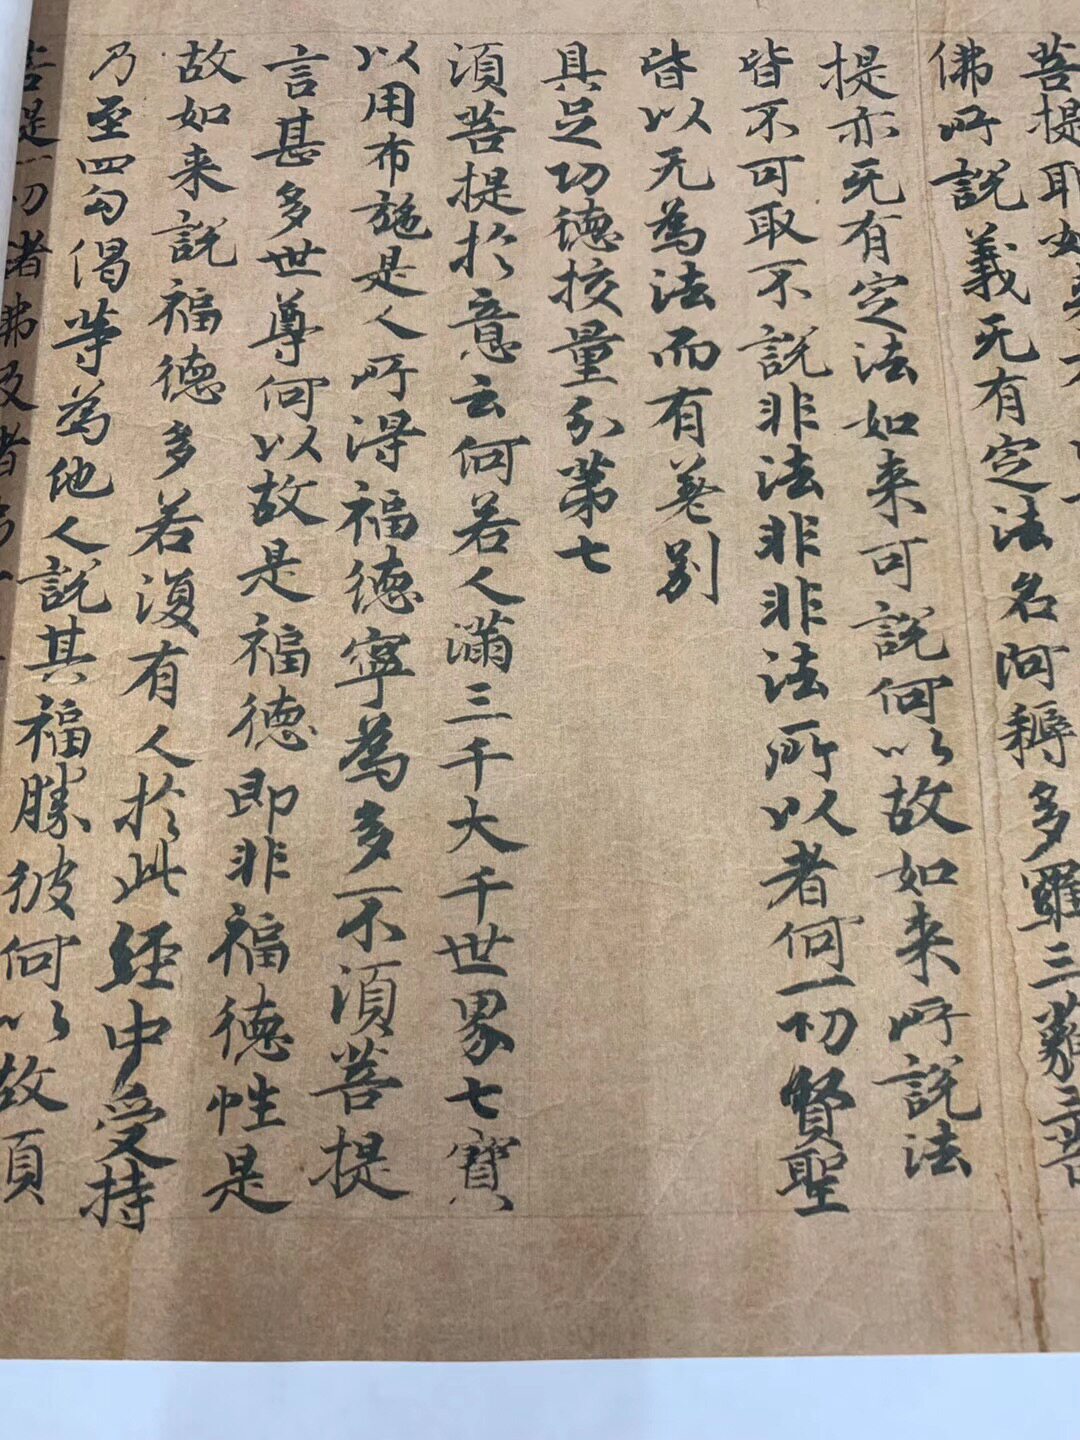 菩提耶如来
佛所説義无有定法名阿耨多羅三藐三菩
提亦无有定法如来可説何以故如来所説法
皆不可取不説非法非非法所以者何一切賢聖
皆以无為法而有差别
具足功德挍量分第七
湏菩提扵意云何若人滿三千大千世界七寳
以用布施是人所得福德寧為多不湏菩提
言甚多世尊何以故是福德即非福德性是
故如来説福德多若復有人扵此經中受持
乃至四句偈等為他人説其福勝彼何以故湏
菩提一切諸佛及諸